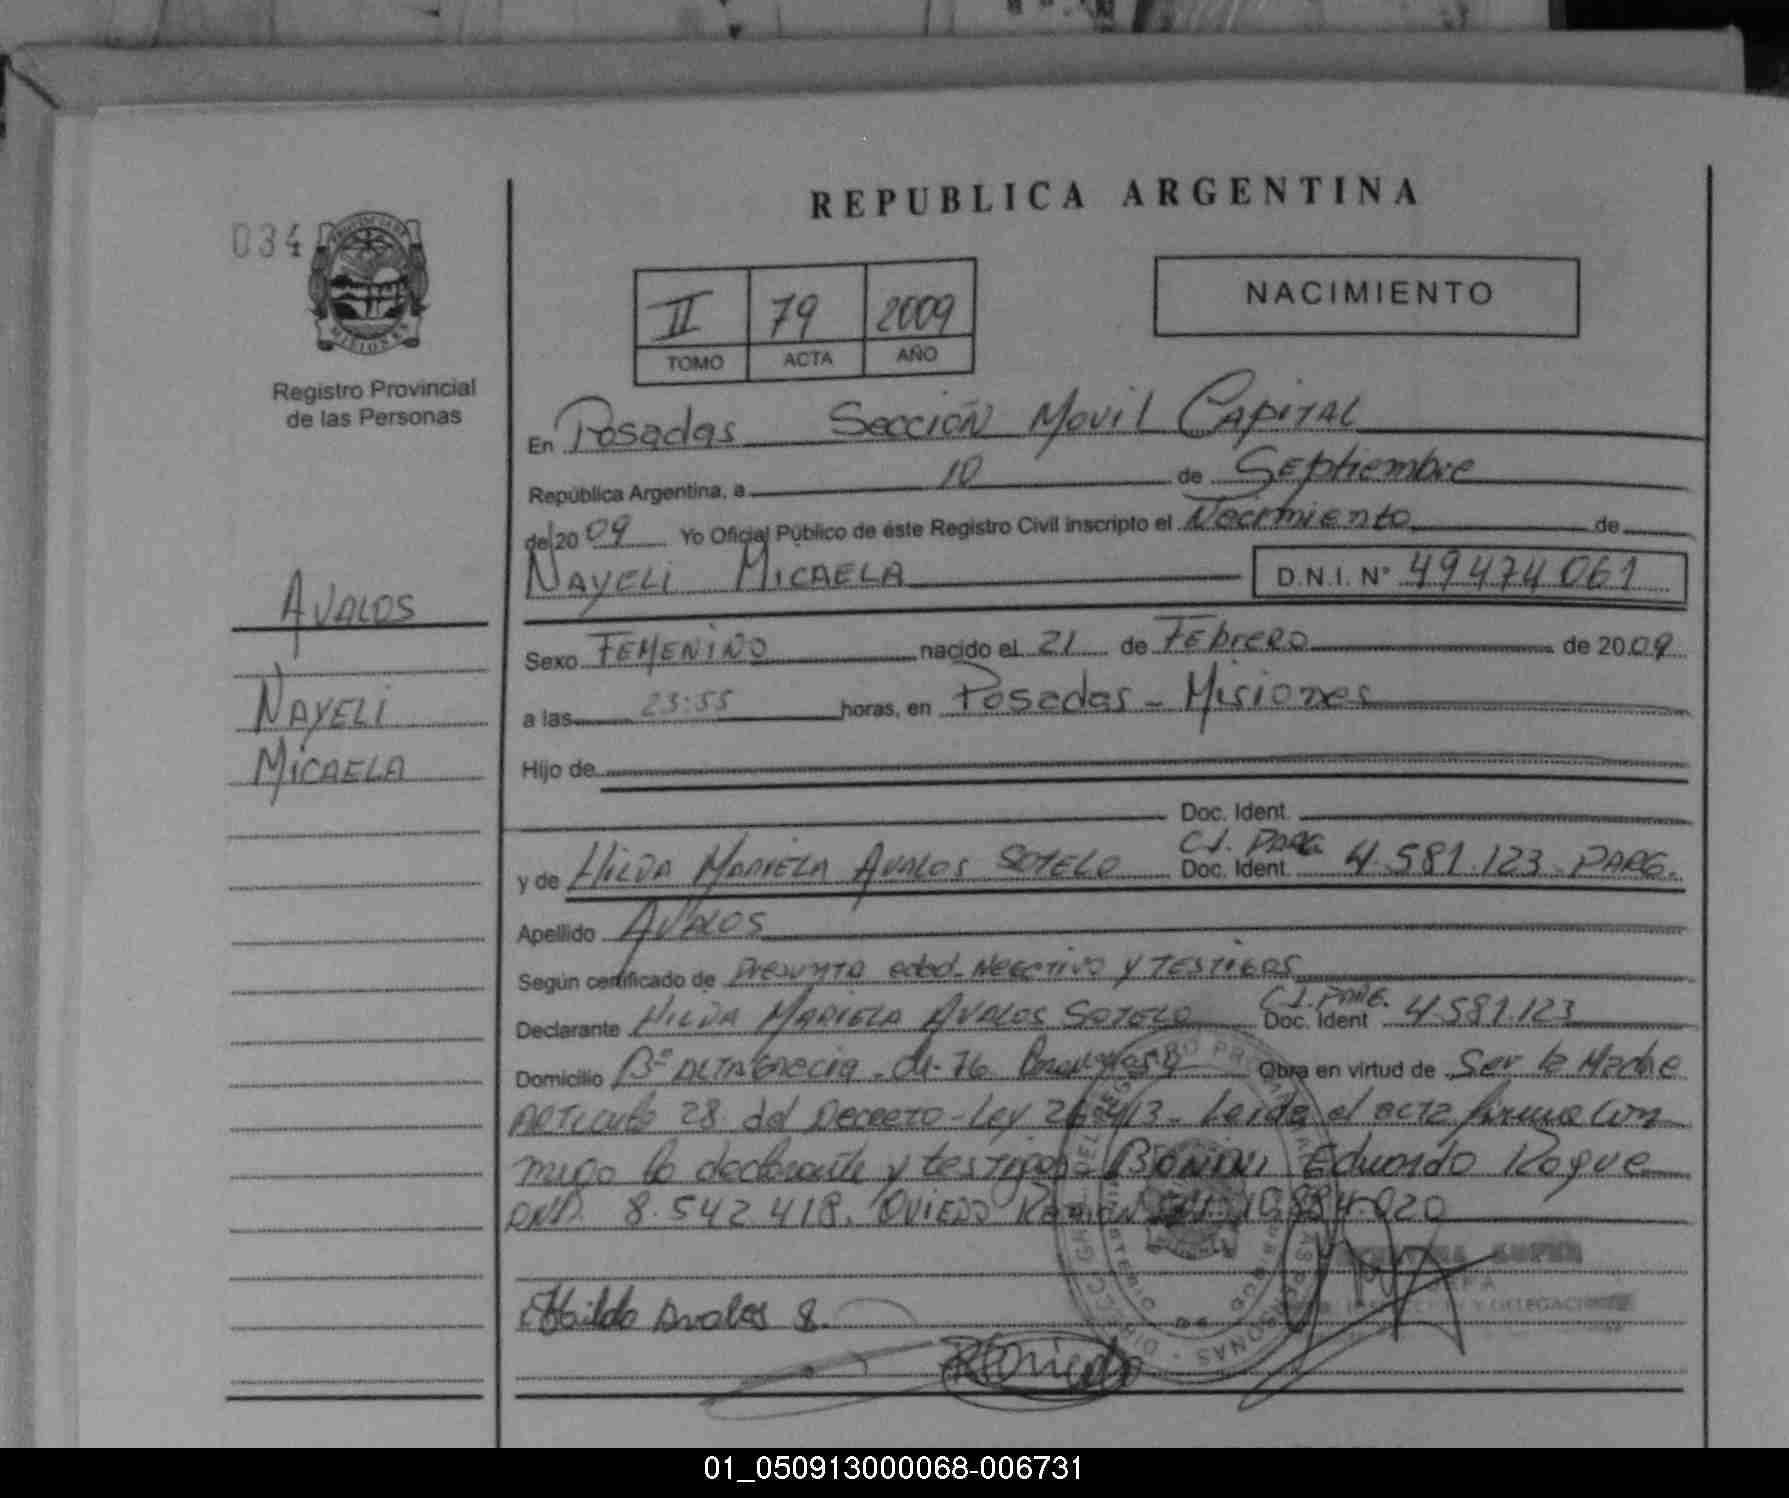 REPUBLICA ARGENTINA
034
PROVINCIA DE
MISIONES
Registro Provincial
de las Personas
II 79 2009
TOMO ACTA AÑO
NACIMIENTO
En Posadas Sección Movil Capital
República Argentina, a 10 de Septiembre
de 20 09 Yo Oficial Público de éste Registro Civil inscripto el Nacimiento de
NAYELI MICAELA D.N.I. N° 49474061
AVALOS
NAYELI
MICAELA
Sexo FEMENINO nacido el 21 de Febrero de 2009
a las 23:55 horas, en Posadas - Misiones
Hijo de
Doc. Ident.
C.I. PARG.
y de HILDA MARIELA AVALOS SOTELO Doc. Ident. 4.581.123 PARG.
Apellido AVALOS
Según certificado de Presunta edad - Negativo y TESTIGOS
C.I. PARG.
Declarante HILDA MARIELA AVALOS SOTELO Doc. Ident 4.581.123
Domicilio B° ALTA GRACIA - CH. 76 Obra en virtud de Ser la Madre
ARTICULO 28 del Decreto-Ley Leida el acta firma con
migo la declarante y testigos BONINI Eduardo Roque
DNI. 8.542.418. OVIEDO Ramón 10.884.020
Avalos S.
ROviedo
Y DELEGACIONES
01_050913000068-006731